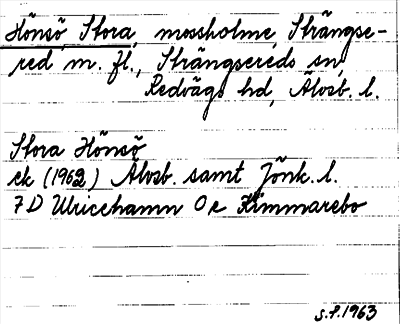 Hönsö Stora, mossholme, Strängse-
red m. fl., Strängsereds sn,
Redvägs hd, Älvsb. l.
Stora Hönsö
ek (1962) Älvsb. samt Jönk. l.
7 D Ulricehamn O e Kimmarebo
s.f.1963